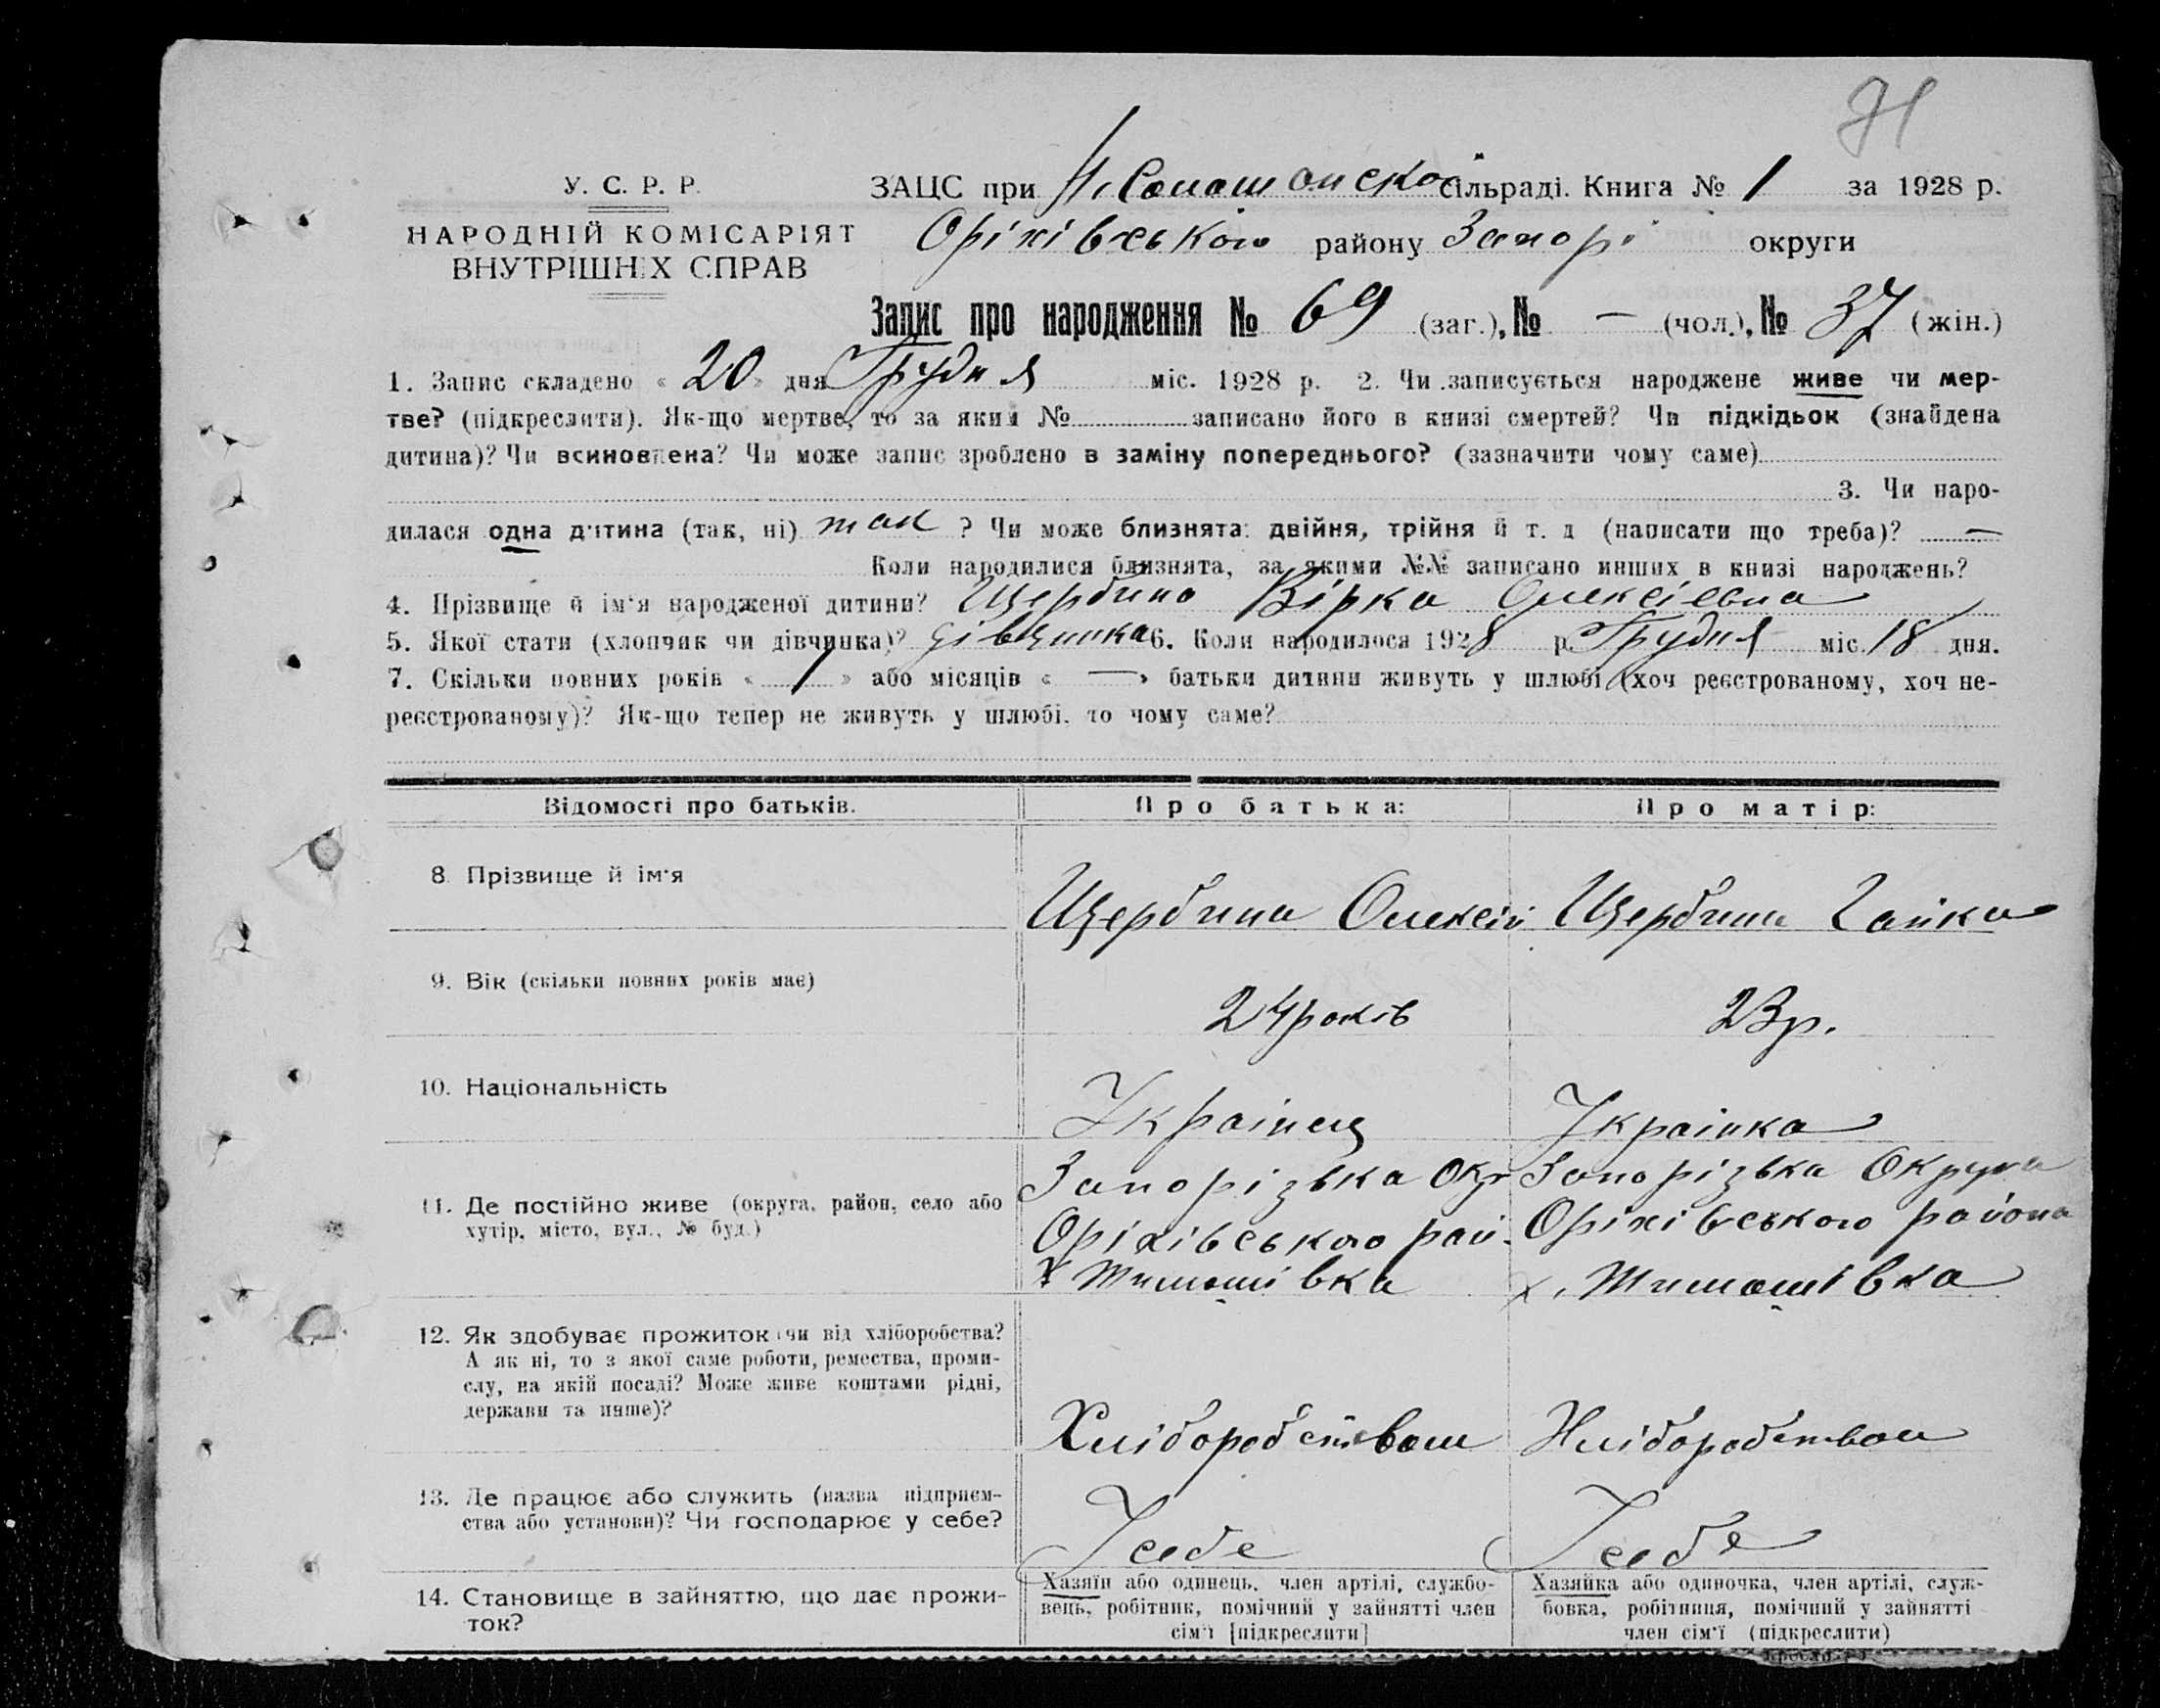 71
У. С. Р. Р.
НАРОДНІЙ КОМІСАРІЯТ
ВНУТРІШНІХ СПРАВ
ЗАЦС при сільраді. Книга № 1 за 1928 р.
Оріхівського району Запорі округи
Запис про народження № 69 (заг.), № — (чол.), № 37 (жін.)
1. Запис складено « 20 » дня Грудня міс. 1928 р. 2. Чи записується народжене живе чи мер-
тве? (підкреслити). Як-що мертве, то за яким № записано його в книзі смертей? Чи підкідьок (знайдена
дитина)? Чи всиновлена? Чи може запис зроблено в заміну попереднього? (зазначити чому саме)
3. Чи наро-
дилася одна дитина (так, ні) так ? Чи може близнята: двійня, трійня й т. д (написати що треба)? —
Коли народилися близнята, за якими №№ записано инших в книзі народжень?
4. Прізвище й ім'я народженої дитини? Щербина Вірка Олексіевна
5. Якої стати (хлопчик чи дівчинка)? дівчинка 6. Коли народилося 1928 р. Грудня міс. 18 дня.
7. Скільки повних років « 1 » або місяців « — » батьки дитини живуть у шлюбі (хоч реєстрованому, хоч не-
реєстрованому)? Як-що тепер не живуть у шлюбі, то чому саме?
Відомості про батьків. Про батька: Про матір:
8. Прізвище й ім'я Щербина Олексій Щербина Галька
9. Вік (скільки повних років має) 24 років 23 р.
10. Національність Украінец Украінка
11. Де постійно живе (округа, район, село або
хутір, місто, вул., № буд.)
Запорізька Окр Запорізька Округа
Оріхівського рай. Оріхівського района
х Тимошівка х. Тимошівка
12. Як здобуває прожиток (чи від хліборобства?
А як ні, то з якої саме роботи, ремества, проми-
слу, на якій посаді? Може живе коштами рідні,
держави та инше)?
Хліборобством Хліборобством
13. Де працює або служить (назва підприєм-
ства або установи)? Чи господарює у себе?
У себе У себе
14. Становище в зайняттю, що дає прожи-
ток?
Хазяїн або одинець, член артілі, службо-
вець, робітник, помічний у зайнятті член
сім'ї [підкреслити]
Хазяйка або одиночка, член артілі, служ-
бовка, робітниця, помічний у зайнятті
член сім'ї (підкреслити)